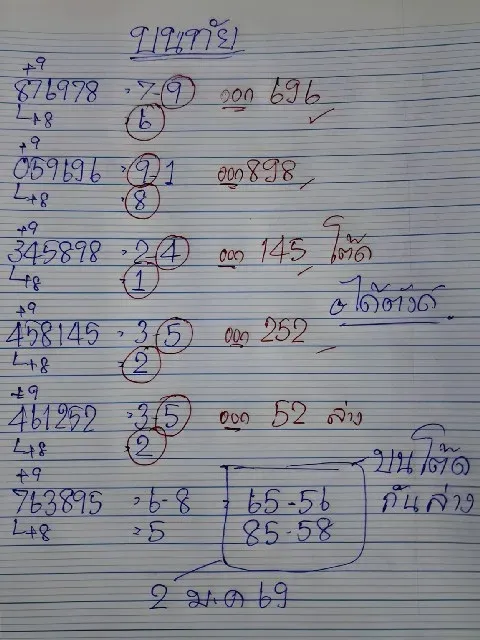 บนทัย
+9
876978 = 7-9 ออก 696
+8 6
+9
059696 = 9-1 ออก 898
+8 8
+9
345898 = 2-4 ออก 145 โต๊ด
+8 1
ได้ตังค์
+9
458145 = 3-5 ออก 252
+8 2
+9
461252 = 3-5 ออก 52 ล่าง
+8 2
บนโต๊ด
+9
763895 = 6-8 = 65-56 กันล่าง
+8 = 5 85-58
2 ม.ค 69